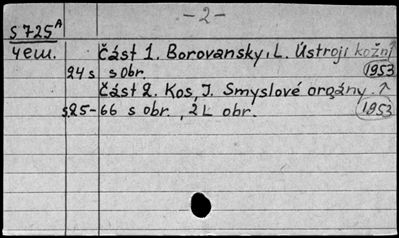 -2-
S 725A
4em. Část 1. Borovansky, L. Ústrojí kožní ↑
24 s s obr. 1953
Část 2. Kos, J. Smyslové orgány. ↑
s25-66 s obr., 2 L obr. 1953